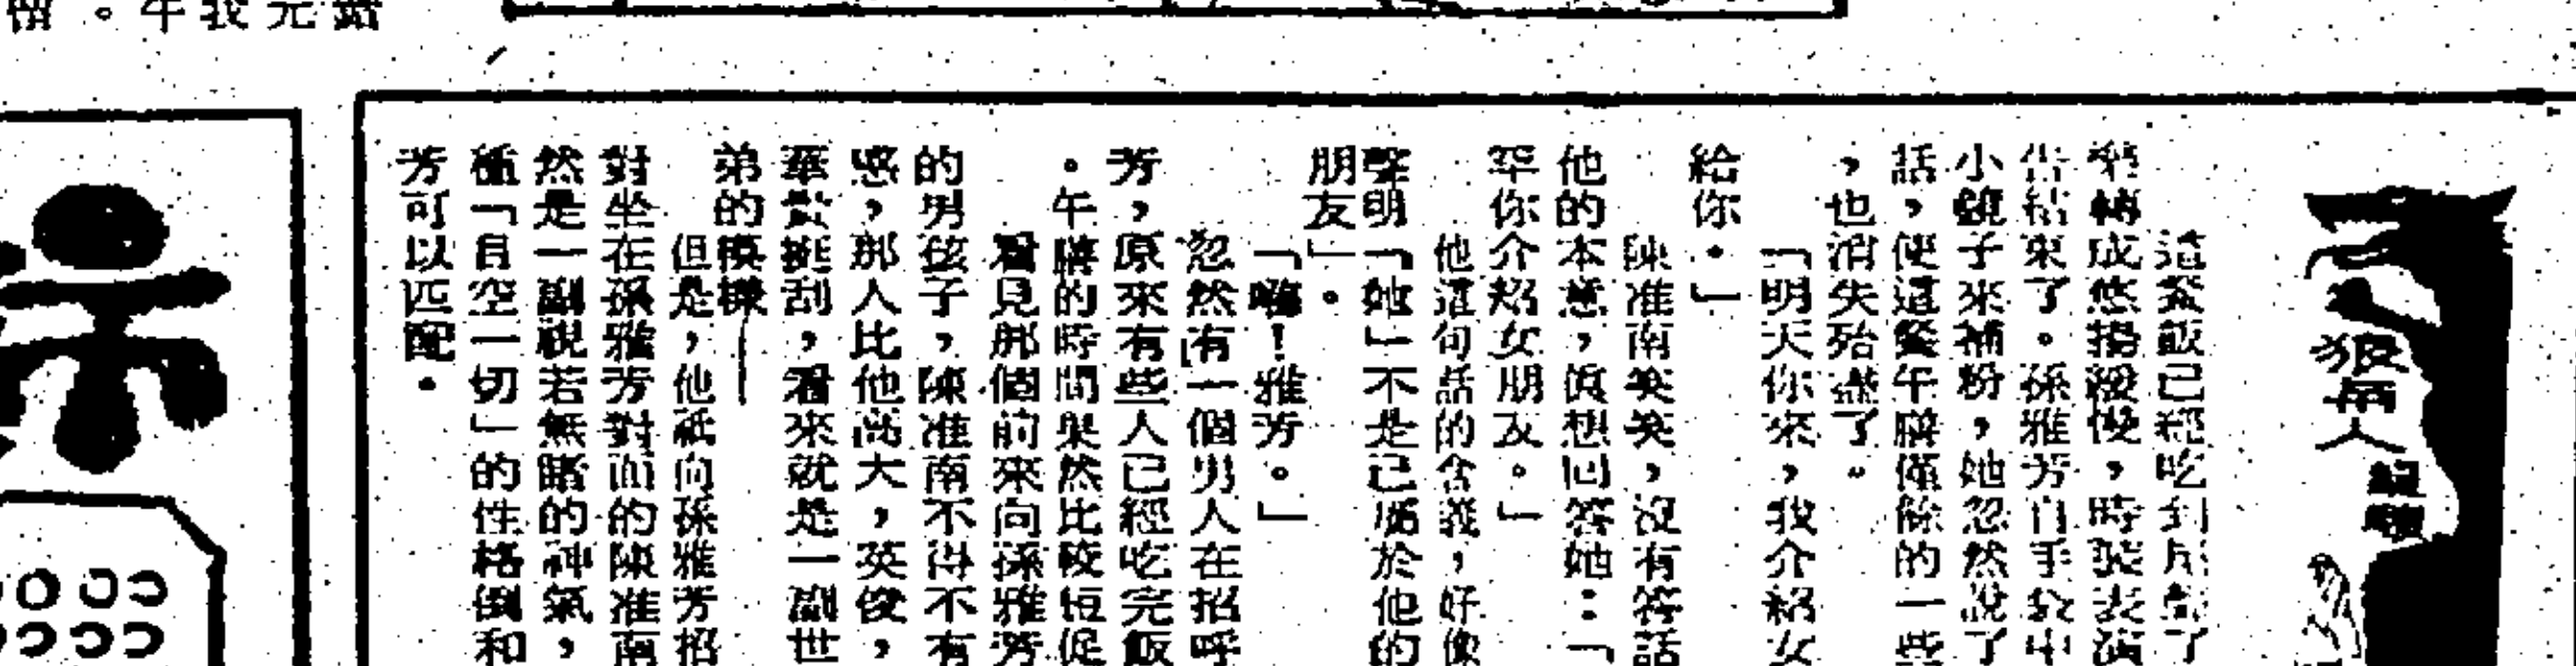 狼
人
這餐飯已經吃到尾聲了
樂轉成悠揚緩慢，時裝表演
告結束了。孫雅芳自手袋中
小鏡子來補粉，她忽然說了
話，使這餐午膳僅餘的一些
，也消失殆盡了。
「明天你來，我介紹女
給你。」
陳准南笑笑，沒有答話
他的本意，眞想回答她：「
罕你介紹女朋友。」
他這句話的含義，好像
聲明「她」不是已屬於他的
朋友」。
「嗨！雅芳。」
忽然有一個男人在招呼
芳，原來有些人已經吃完飯
。午膳的時間果然比較短促
看見那個前來向孫雅芳
的男孩子，陳准南不得不有
感，那人比他高大，英俊，
華貴挺刮，看來就是一副世
弟的模樣
但是，他祇向孫雅芳招
對坐在孫雅芳對面的陳准南
然是一副視若無睹的神氣，
種「目空一切」的性格倒和
芳可以匹配。